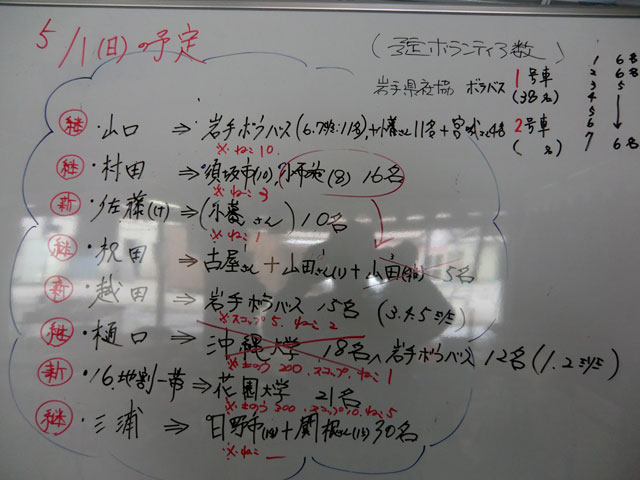 5/1(日)の予定
(予定ボランティア数)
岩手県社協 ボラバス 1号車 (38名)
2号車 ( 名)
1 6名
2 6名
3 5
4 ↓
5
6
7 6名
継・山口 ⇒ 岩手ボラバス(6.7班:11名)+小暮さん11名+宮
※ねこ10
継・村田 ⇒ 須坂市(10), (8) 16名
※ねこ3
新・佐藤 ⇒ (小暮さん) 10名
※ねこ1
継・沢田 ⇒ 古屋さん+山田さん(1)+小田 5名
新・越田 ⇒ 岩手ボラバス 15名 (3.4.5
※スコップ5. ねこ2
継・樋口 ⇒ 沖縄大学 18名 岩手ボラバス 12名(1.2
※土のう200. スコップ. ねこ1
新・16地割一帯⇒花園大学 21名
※土のう300 スコップ10. ねこ5
継・三浦 ⇒ 日野市(18)+関根さん(12)30名
※ねこ